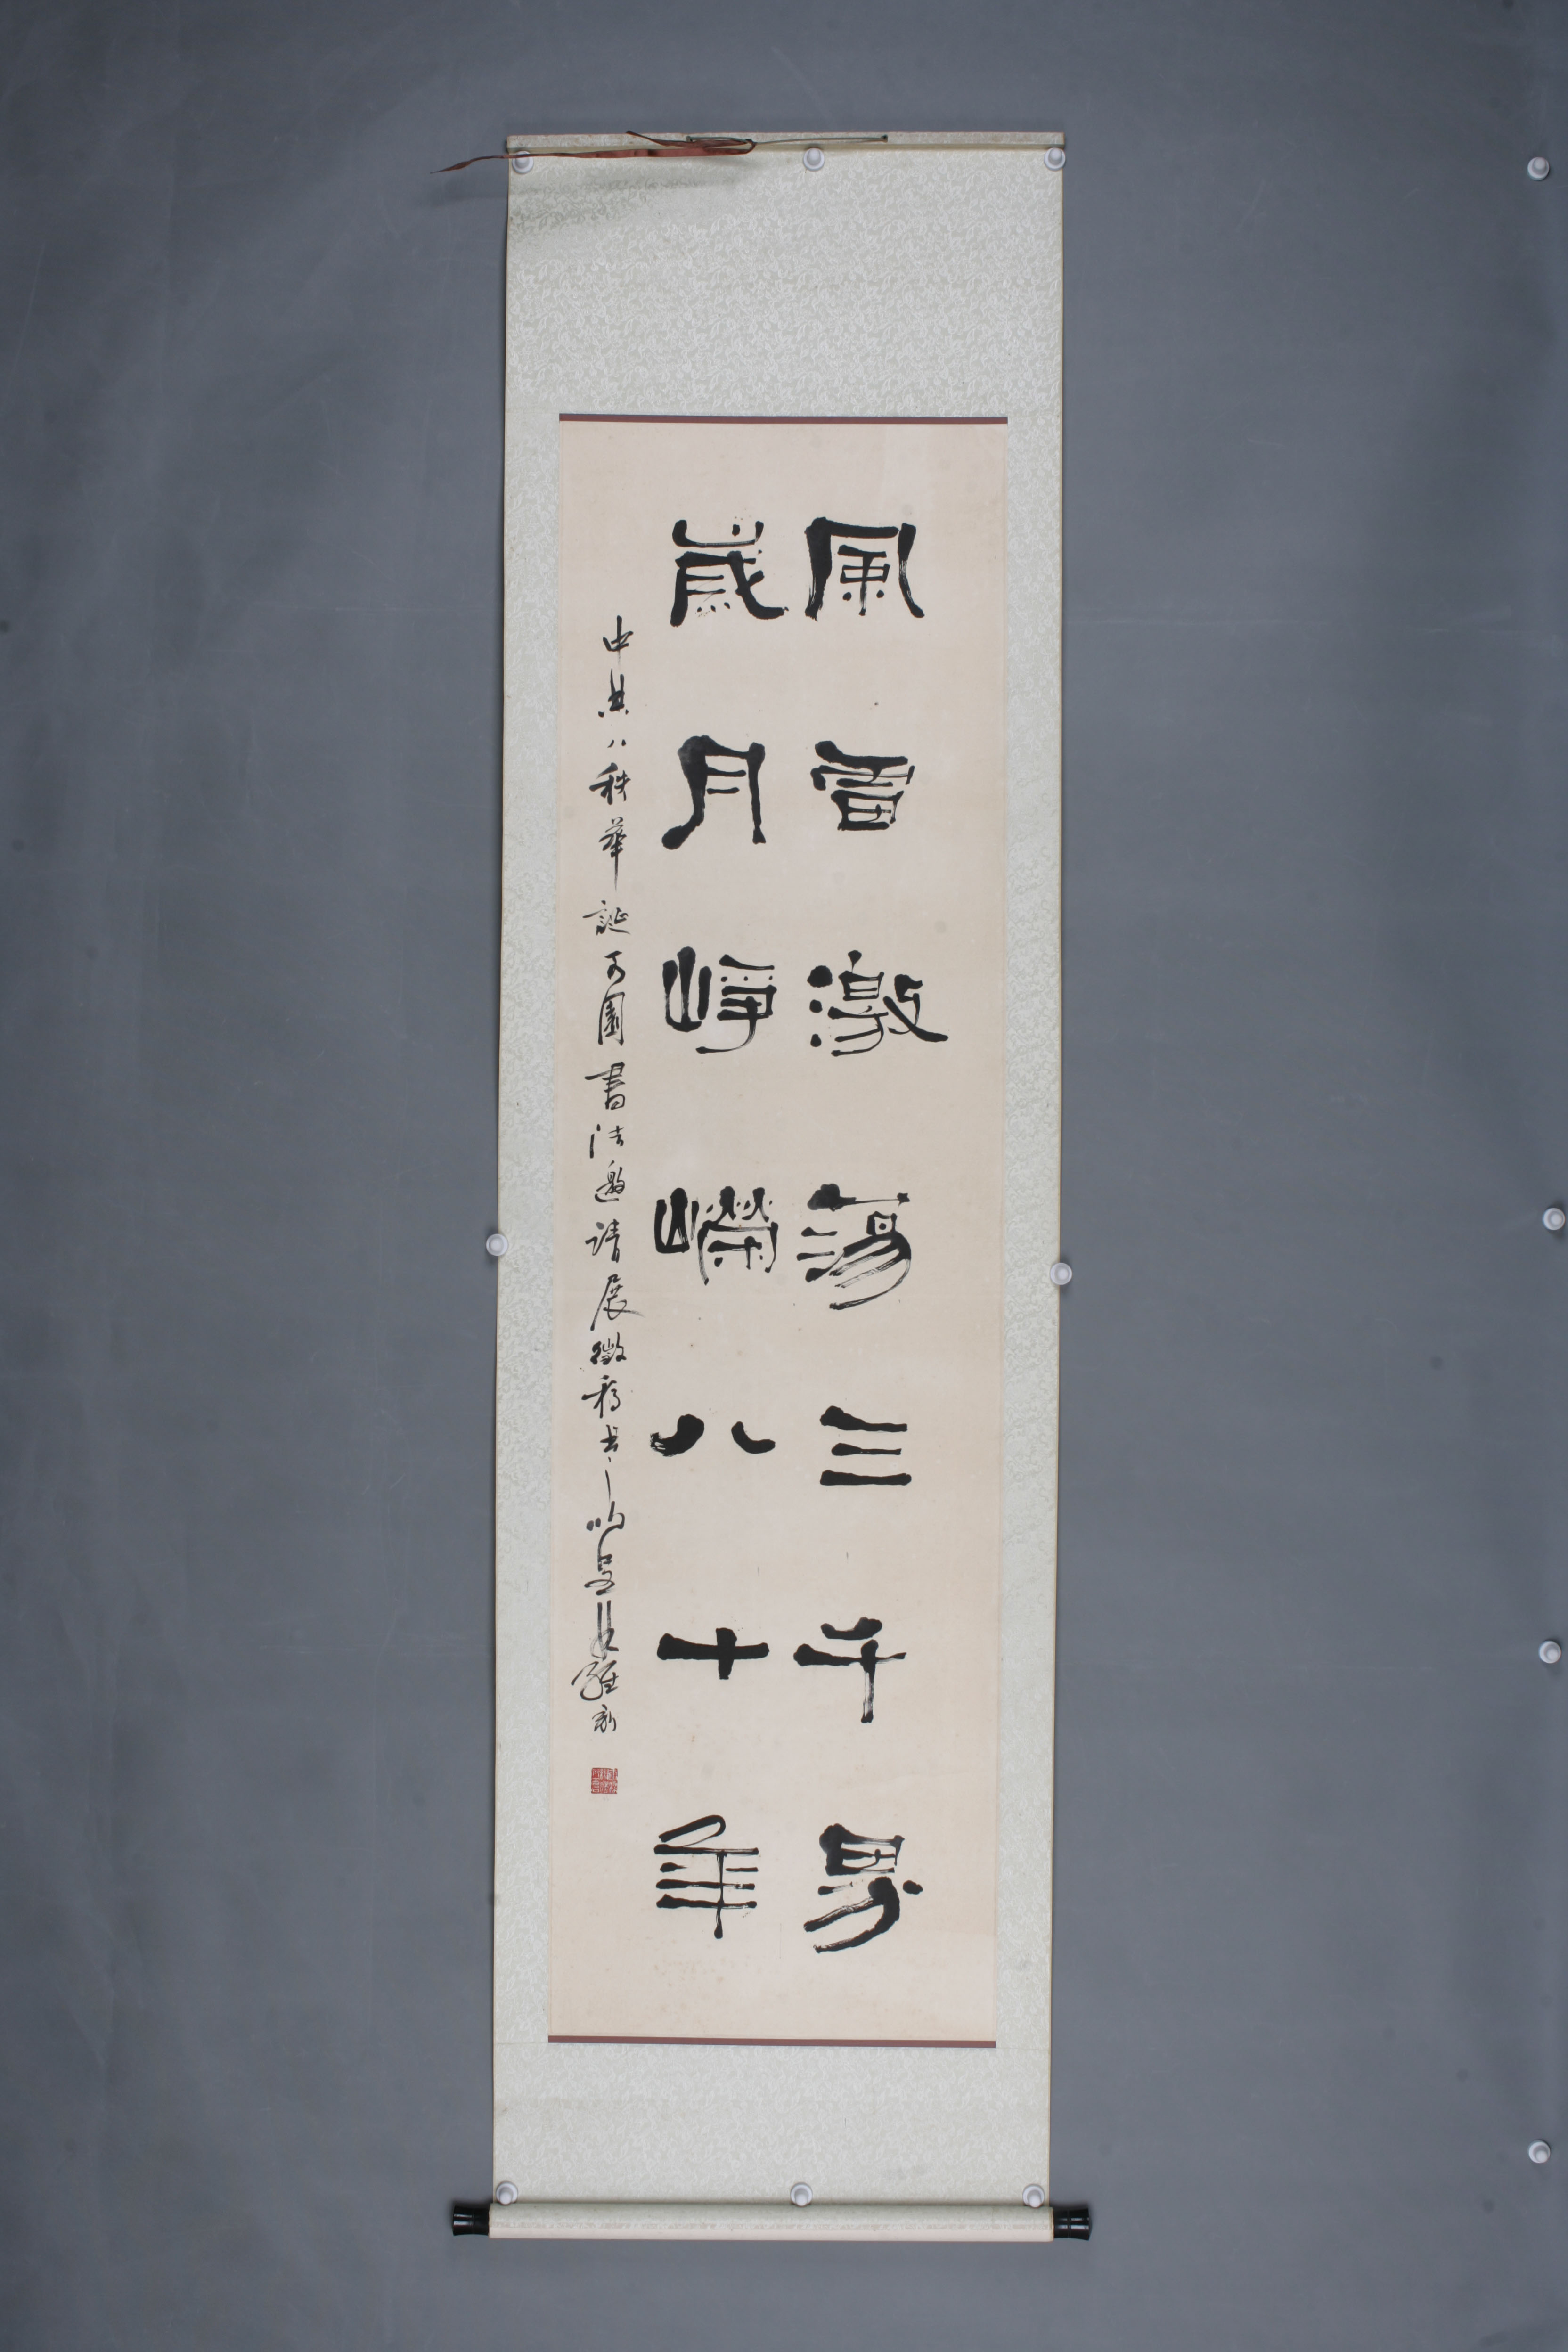 風雷激蕩三千界
歲月崢嶸八十年
中共八秩華誕可園書法邀請展徵稿